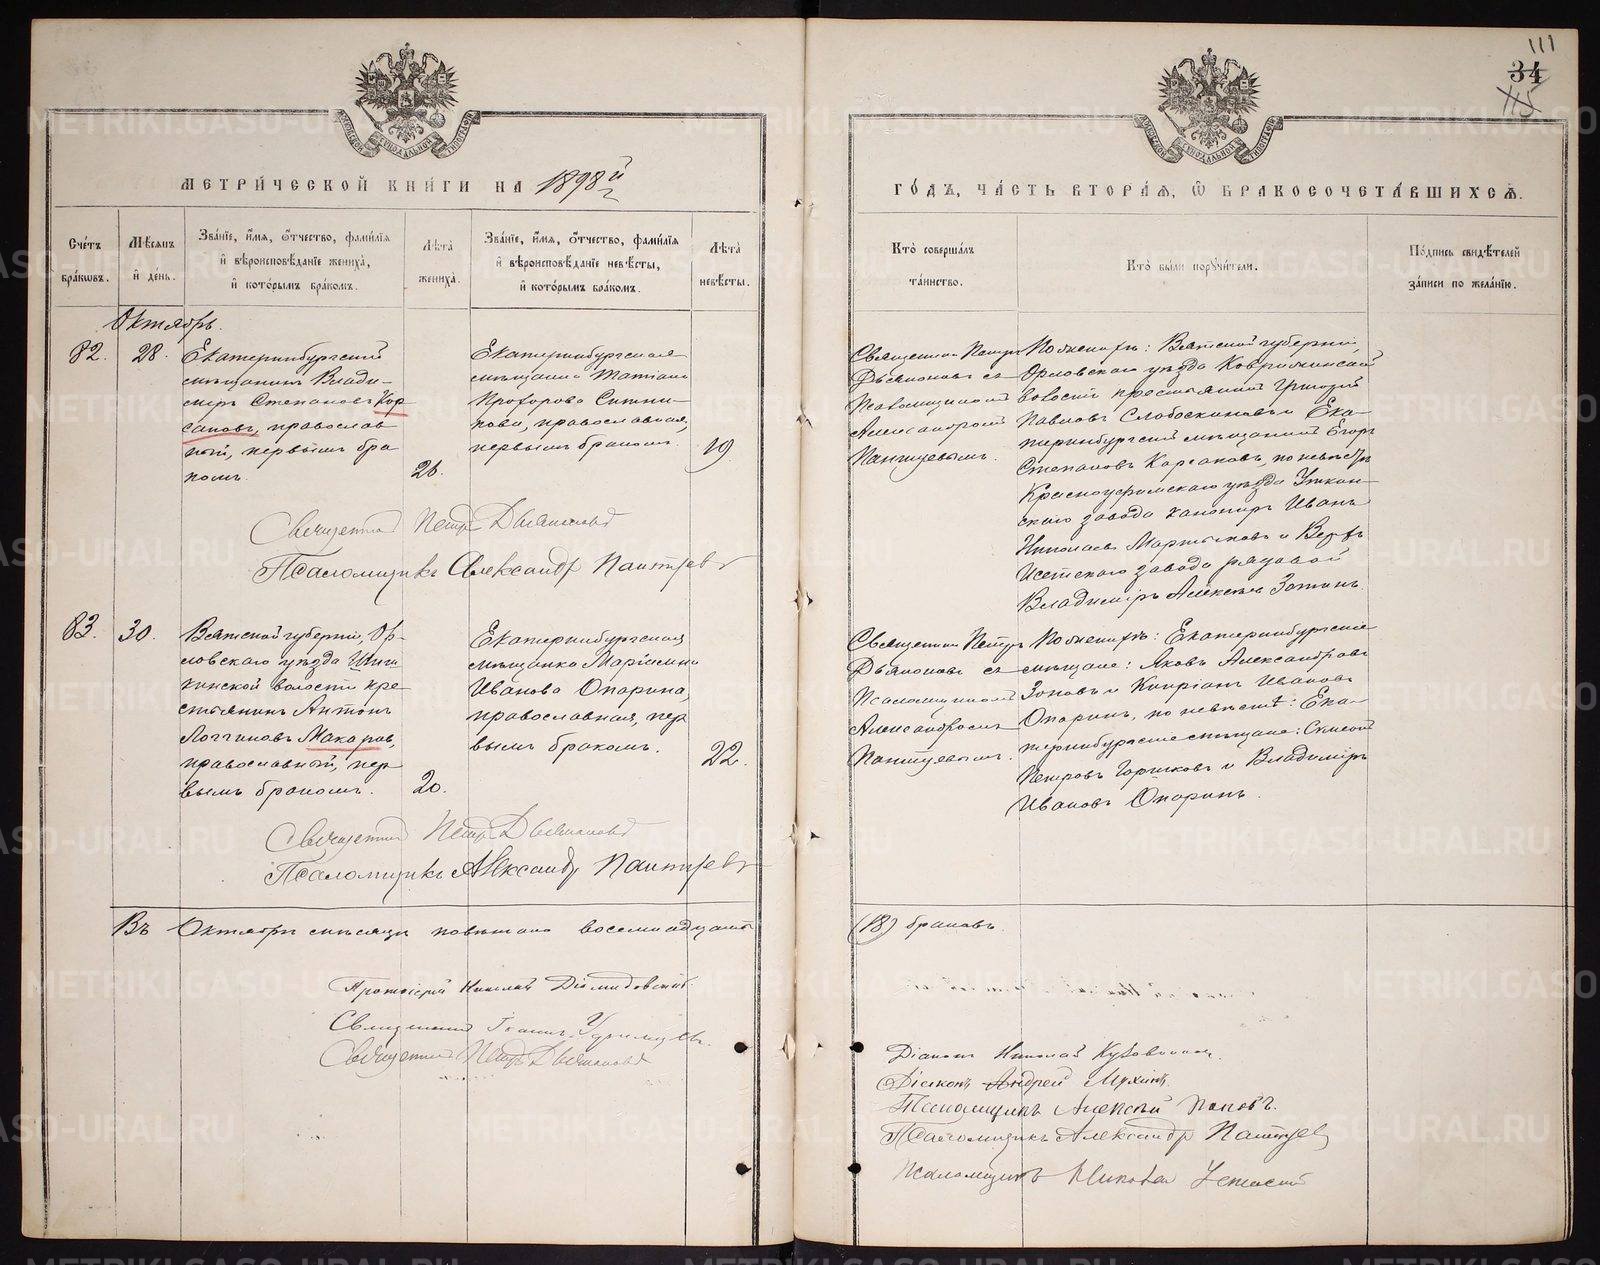 111
34
115
МЕТРИ́ЧЕСКОЙ КНИ́ГИ НА 1898й
ГО́ДЪ, ЧА́СТЬ ВТОРА́Я, Ѡ БРАКОСОЧЕТА́ВШИХСѦ.
Сче́тъ бра́кωвъ.
Мѣ́сѧцъ и҆ де́нь.
Зва́нїе, и҆́мѧ, ѻ҆́тчество, фами́лїѧ и҆ вѣроисповѣ́данїе жениха̀, и҆ кото́рымъ бра́комъ.
Лѣ́та жениха̀.
Зва́нїе, и҆́мѧ, ѻ҆́тчество, фами́лїѧ и҆ вѣроисповѣ́данїе невѣ́сты, и҆ кото́рымъ бра́комъ.
Лѣ́та невѣ́сты.
Кто̀ соверша́лъ та́инство.
Кто̀ бы́ли порꙋчи́тели.
По́дпись свидѣ́телей за́писи по жела́нїю.
Октябрь.
82.
28.
Екатеринбургскій
мѣщанинъ Влади-
міръ Степановъ Кор
саковъ, православ
ный, первымъ бра
комъ.
26.
Екатеринбургская
мѣщанка Татіана
Прохорова Ситни-
кова, православная,
первымъ бракомъ.
19
Священникъ Петръ
Дьяконовъ съ
Псаломщикомъ
Александромъ
Пантуевымъ.
По женихѣ: Вятской губерніи,
Орловскаго уѣзда
волости крестьянинъ Григорій
Павловъ и Ека-
теринбургскій мѣщанинъ Егоръ
Степановъ Корсаковъ, по невѣстѣ
Красноуфимскаго уѣзда Уткин-
скаго завода Иванъ
Николаевъ и Верхъ
Исетскаго завода рядовой
Владиміръ Алексѣевъ Зотинъ.
Священникъ Петръ Дьяконовъ
Псаломщикъ Александръ Пантуевъ
83.
30.
Вятской губерніи, Ор-
ловскаго уѣзда
волости кре
стьянинъ Антонъ
Логгиновъ Макаровъ,
православный, пер
вымъ бракомъ.
20.
Екатеринбургская
мѣщанка Маріамна
Иванова Опарина,
православная, пер
вымъ бракомъ.
22.
Священникъ Петръ
Дьяконовъ съ
Псаломщикомъ
Александромъ
Пантуевымъ.
По женихѣ: Екатеринбургскіе
мѣщане: Яковъ Александровъ
Зоновъ и Кипріанъ Ивановъ
Опаринъ, по невѣстѣ: Ека-
теринбургскіе мѣщане: Симеонъ
Петровъ Горшковъ и Владиміръ
Ивановъ Опаринъ.
Священникъ Петръ Дьяконовъ
Псаломщикъ Александръ Пантуевъ
Въ Октябрѣ мѣсяцѣ повѣнчано восемнадцать (18) браковъ.
Протоіерей Николай Діомидовскій
Священникъ Іоаннъ
Священникъ Петръ Дьяконовъ
Діаконъ Николай
Діаконъ Андрей Мухинъ
Псаломщикъ Алексѣй Поповъ.
Псаломщикъ Александръ Пантуевъ
Псаломщикъ Николай
METRIKI.GASO-URAL.RU